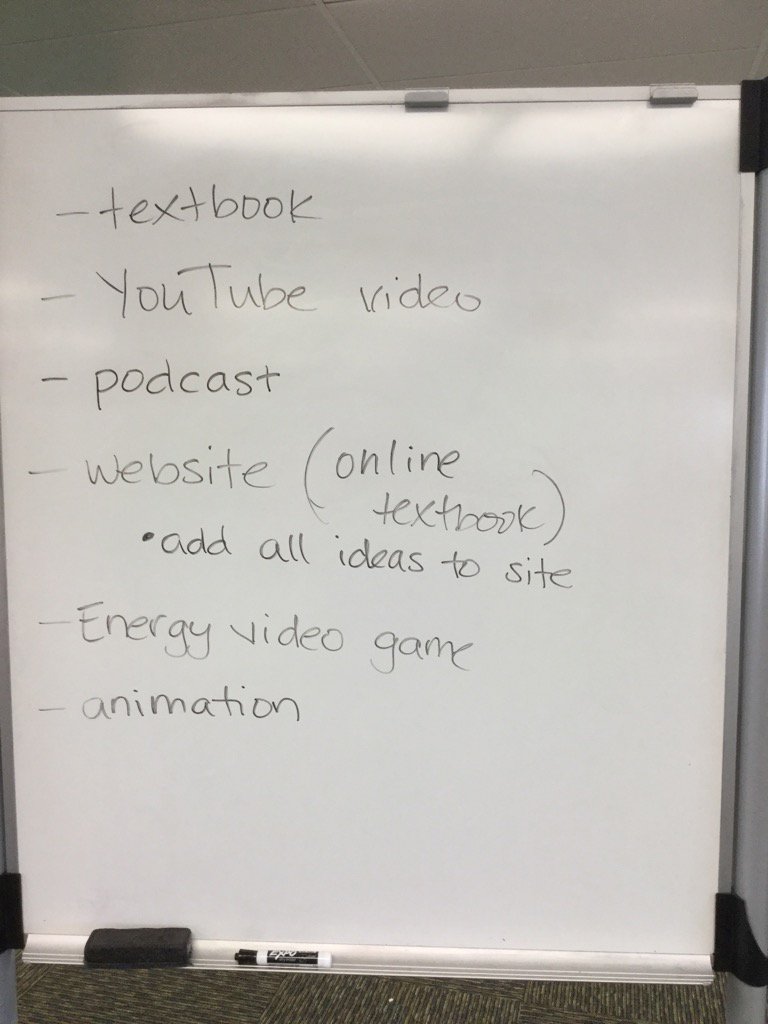 - textbook
- YouTube video
- podcast
- website (online
textbook)
• add all ideas to site
- Energy video game
- animation
EXPO